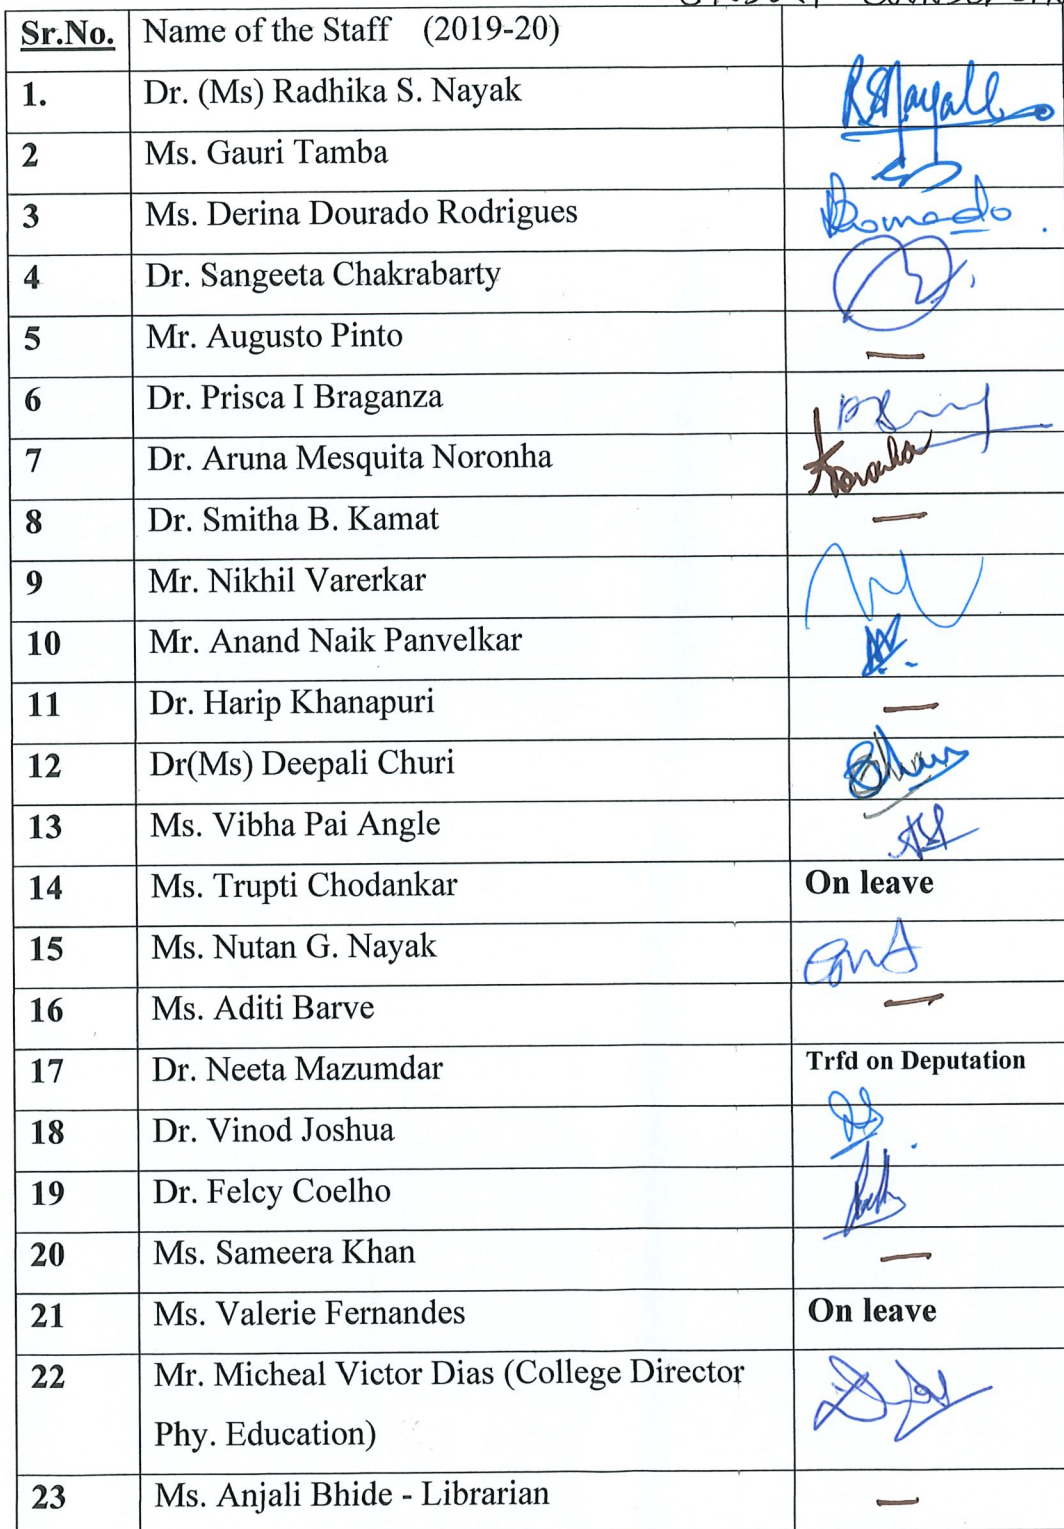 Sr.No. Name of the Staff (2019-20)
1. Dr. (Ms) Radhika S. Nayak
2 Ms. Gauri Tamba
3 Ms. Derina Dourado Rodrigues
4 Dr. Sangeeta Chakrabarty
5 Mr. Augusto Pinto —
6 Dr. Prisca I Braganza
7 Dr. Aruna Mesquita Noronha
8 Dr. Smitha B. Kamat —
9 Mr. Nikhil Varerkar
10 Mr. Anand Naik Panvelkar
11 Dr. Harip Khanapuri —
12 Dr(Ms) Deepali Churi
13 Ms. Vibha Pai Angle
14 Ms. Trupti Chodankar On leave
15 Ms. Nutan G. Nayak
16 Ms. Aditi Barve —
17 Dr. Neeta Mazumdar Trfd on Deputation
18 Dr. Vinod Joshua
19 Dr. Felcy Coelho
20 Ms. Sameera Khan —
21 Ms. Valerie Fernandes On leave
22 Mr. Micheal Victor Dias (College Director
Phy. Education)
23 Ms. Anjali Bhide - Librarian —